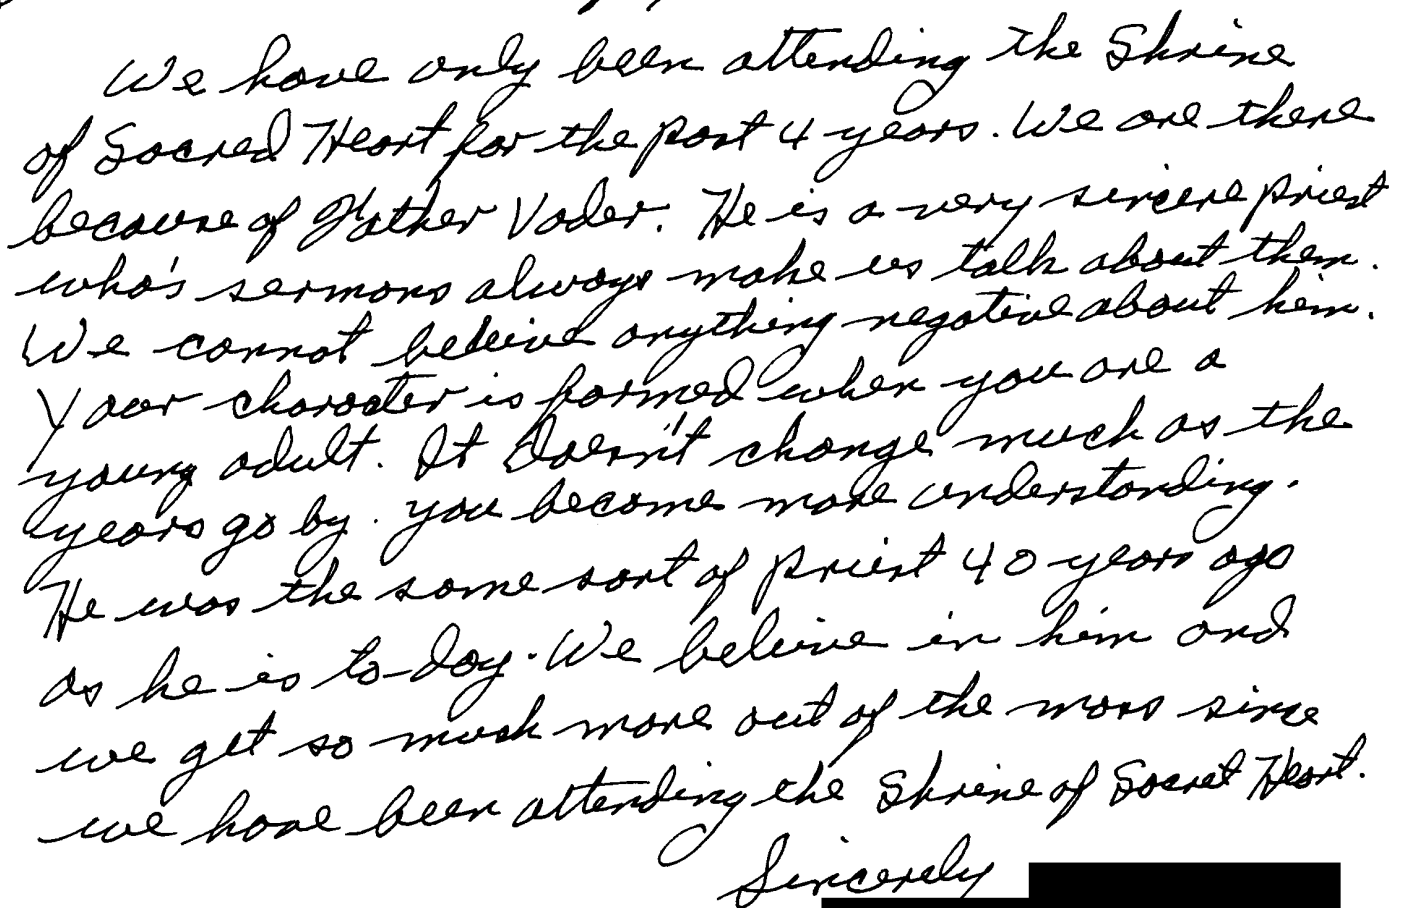 We have only been attending the Shrine
of Sacred Heart for the past 4 years. We are there
because of Father Vader. He is a very sincere priest
who's sermons always make us talk about them.
We cannot believe anything negative about him.
Your character is formed when you are a
young adult. It Doesn't change much as the
years go by. you become more understanding.
He was the same sort of priest 40 years ago
as he is to-day. We believe in him and
we get so much more out of the mass since
we have been attending the Shrine of Sacret Heart.
Sincerely